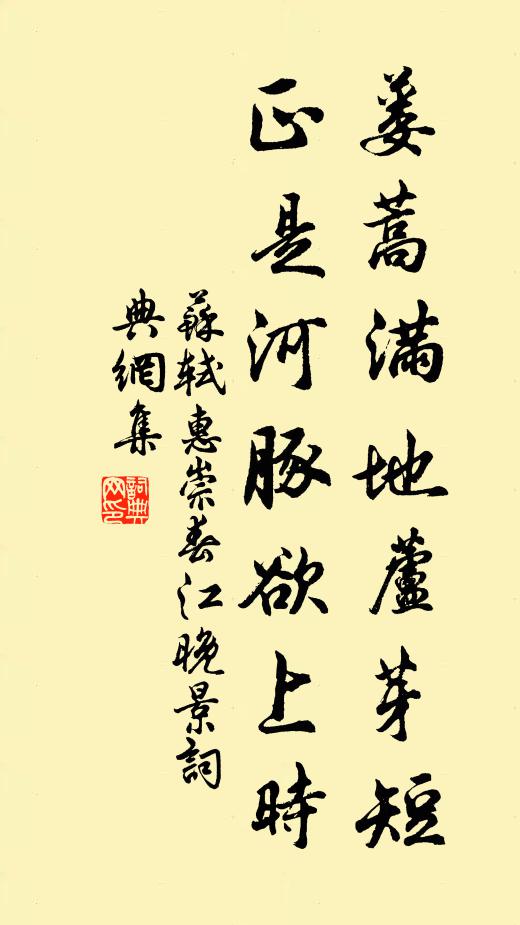 蒌蒿满地蘆芽短
正是河豚欲上時
蘇軾惠崇春江晚景詞
典網集
詞典网印